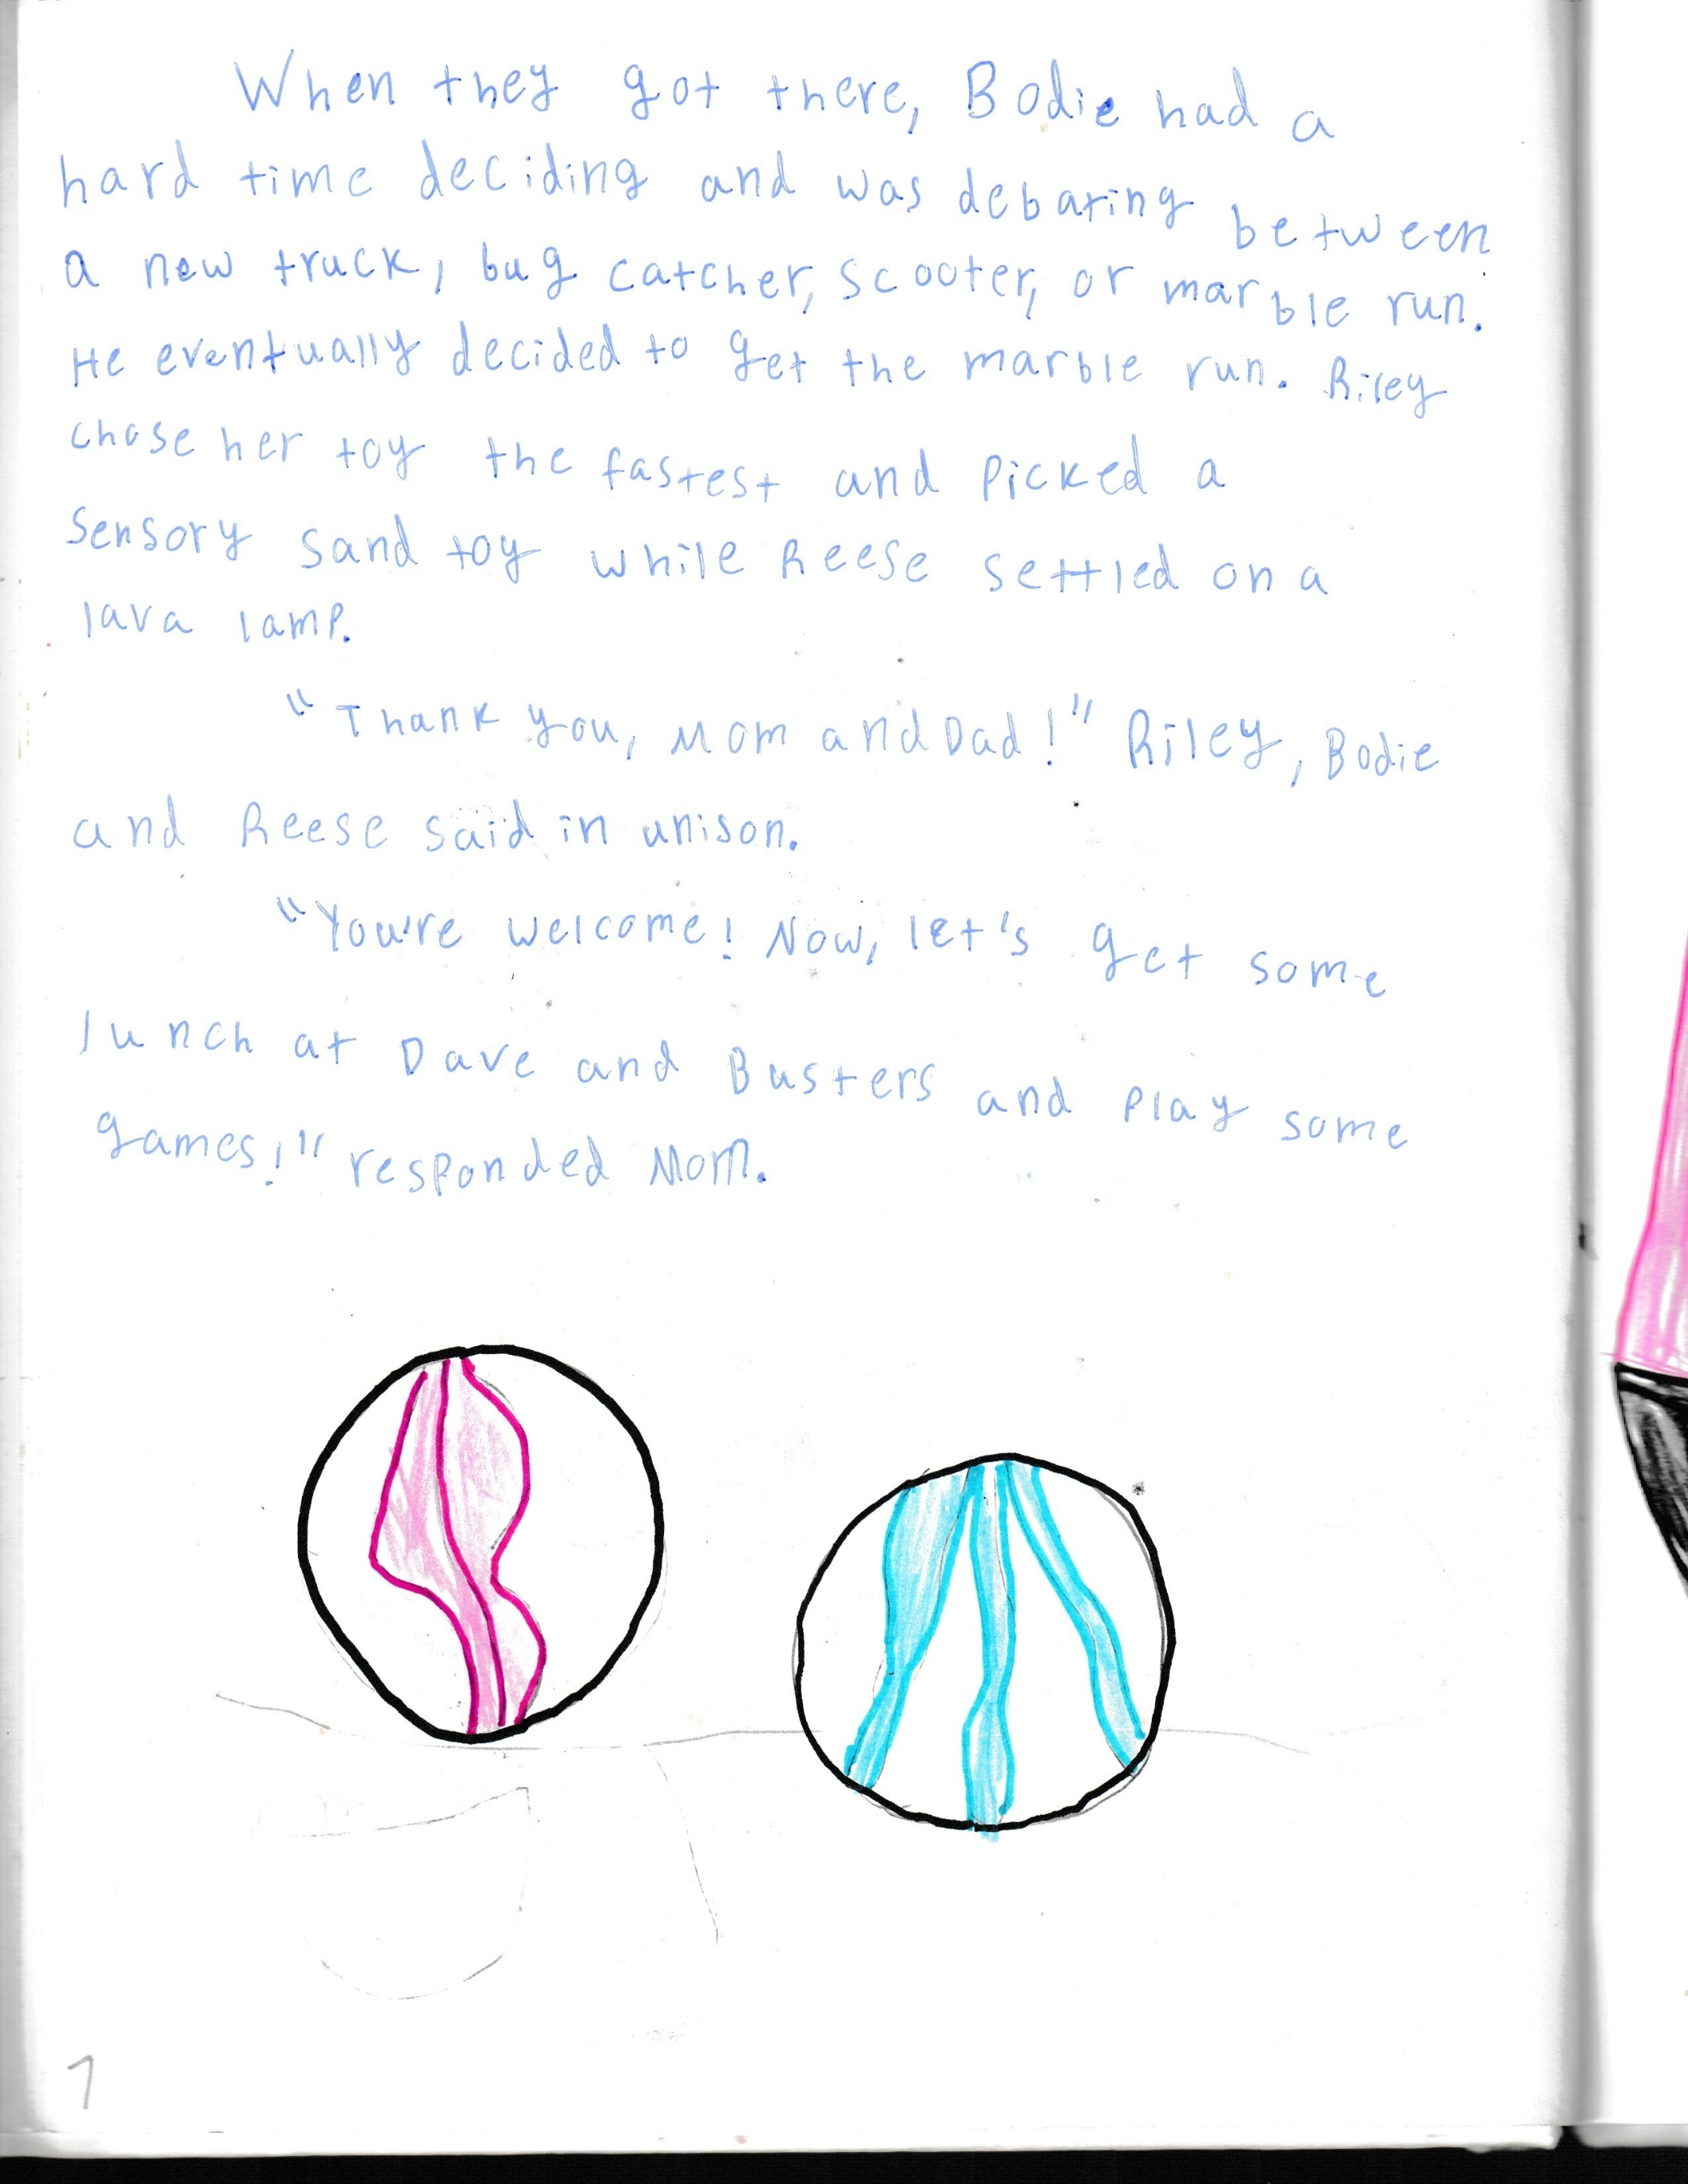 When they got there, Bodie had a
hard time deciding and was debating between
a new truck, bug catcher, scooter, or marble run.
He eventually decided to get the marble run. Riley
chose her toy the fastest and picked a
sensory sand toy while Reese settled on a
lava lamp.
"Thank you, Mom and Dad!" Riley, Bodie
and Reese said in unison.
"You're welcome! Now, let's get some
lunch at Dave and Busters and play some
games!" responded Mom.
7